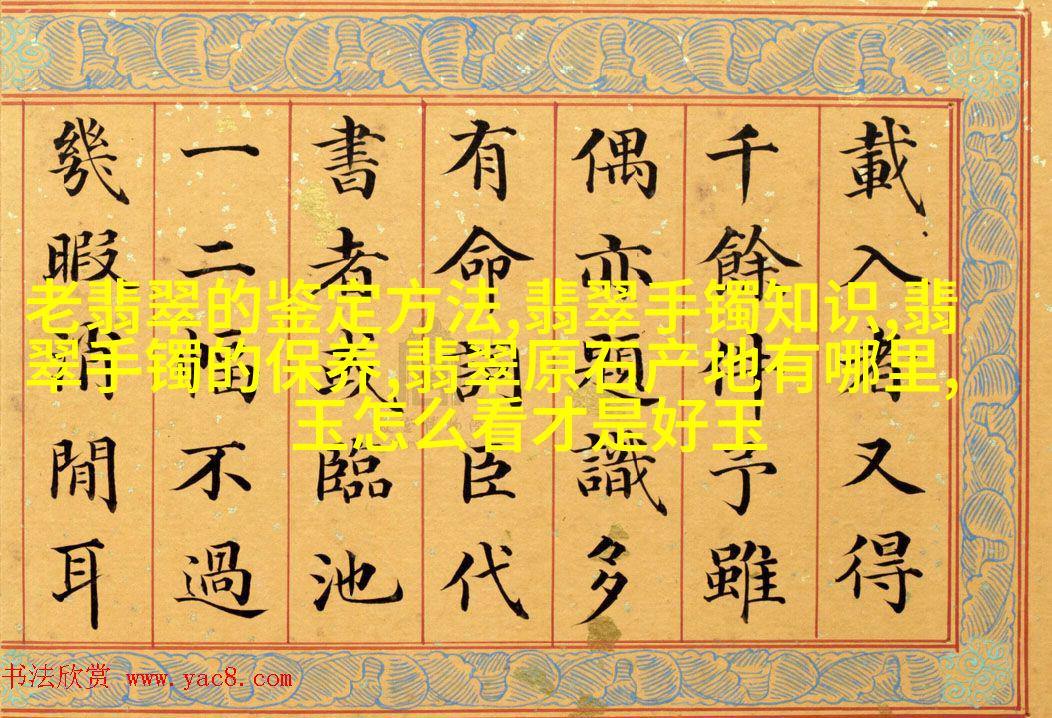 載入又得
千餘予雖
偶亦題識多
有命詞臣代
書者或臨池
一二幅不過
幾暇閒耳
老翡翠的鉴定方法,翡翠手镯知识,翡
翠手镯的保养,翡翠原石产地有哪里,
玉怎么看才是好玉
书法欣赏 www.yac8.com